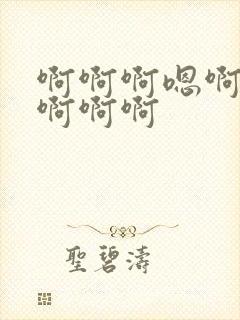 啊啊啊嗯啊
啊啊啊
聖碧濤